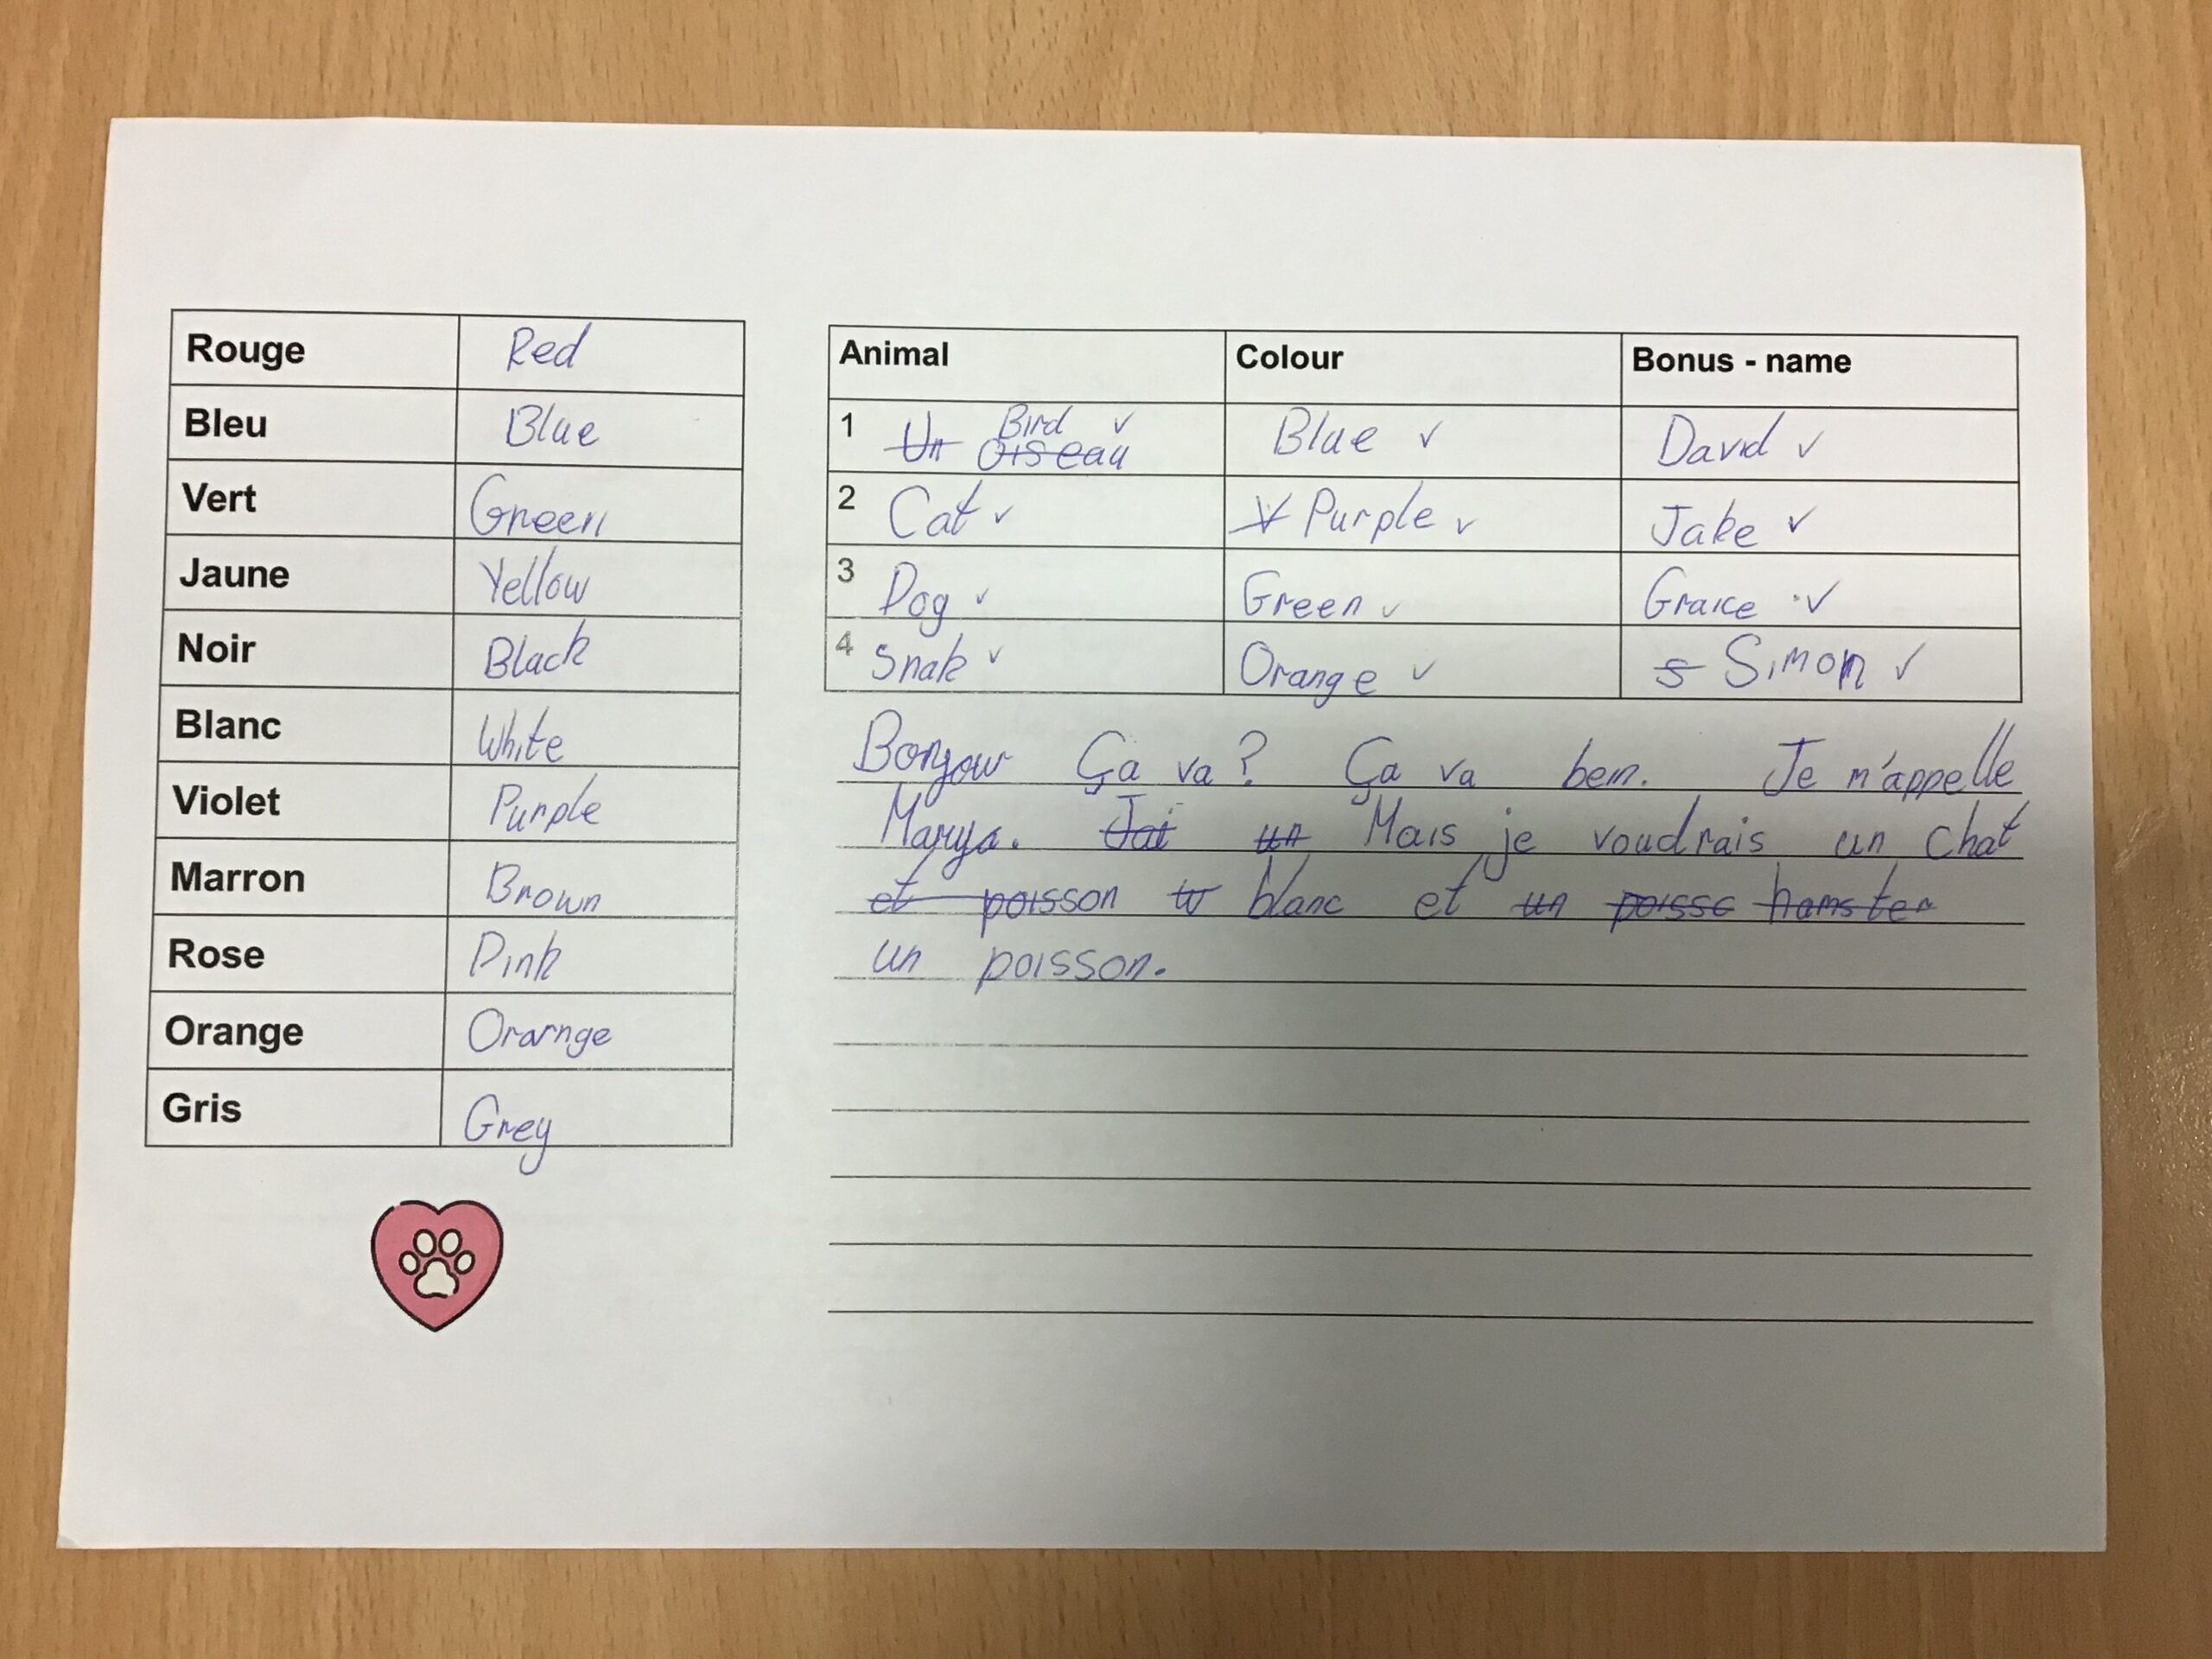 Rouge Red
Bleu Blue
Vert Green
Jaune Yellow
Noir Black
Blanc White
Violet Purple
Marron Brown
Rose Pink
Orange Orarnge
Gris Grey
Animal Colour Bonus - name
1 Un Oiseau Bird ✓ Blue ✓ David ✓
2 Cat ✓ Purple ✓ Jake ✓
3 Dog ✓ Green ✓ Graice ✓
4 Snak ✓ Orange ✓ s Simon ✓
Bonjour Ça va? Ça va bein. Je m'appelle
Marya. Jai un Mais je voudrais un chat
et poisson blanc et un poisso hamster
un poisson.